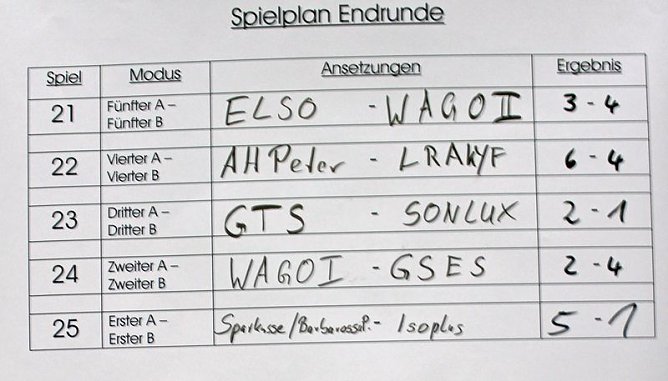 Spielplan Endrunde
Spiel Modus Ansetzungen Ergebnis
21 Fünfter A – Fünfter B ELSO - WAGO II 3 - 4
22 Vierter A – Vierter B AH Peter - LRAKYF 6 - 4
23 Dritter A – Dritter B GTS - SONLUX 2 - 1
24 Zweiter A – Zweiter B WAGO I - GSES 2 - 4
25 Erster A – Erster B Sparkasse/Barbarossap. - Isoplus 5 - 1